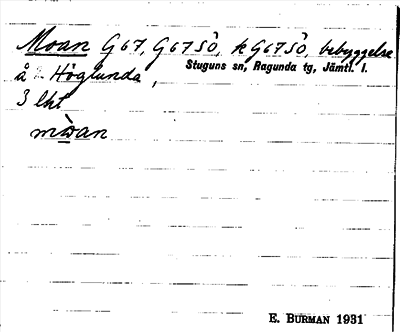 Moan G67, G67SÖ, kG67SÖ, bebyggelse
å Höglunda,
Stuguns sn, Ragunda tg, Jämtl. l.
3 lht
mò̱an
E. BURMAN 1931